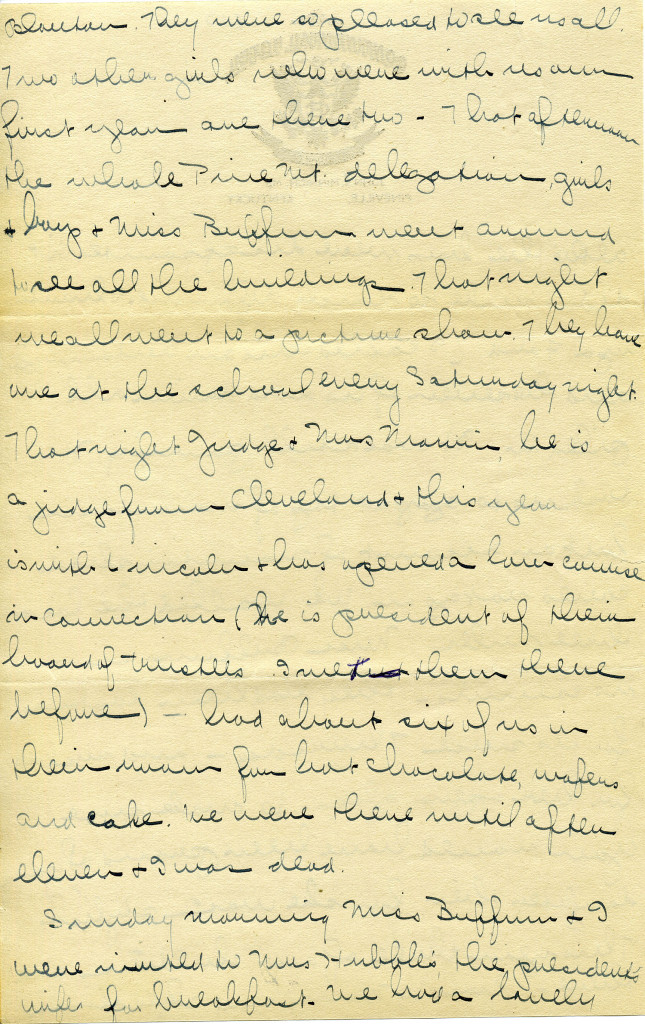 Blanton. They were so pleased to see us all.
Two other girls who were with us our
first year are there too - That afternoon
the whole Pine Mt. delegation, girls
& boys & Miss Buffum went around
to see all the buildings. That night
we all went to a picture show. They have
one at the school every Saturday night.
That night Judge & Mrs Marvin, he is
a judge from Cleveland & this year
is with Lincoln & has opened a law course
in connection (He is president of their
board of trustees. I met them there
before) - had about six of us in
their room for hot chocolate, wafers
and cake. We were there until after
eleven & I was dead.
Sunday morning Miss Buffum & I
were invited to Mrs Hubble's, the president's
wife for breakfast. We had a lovely